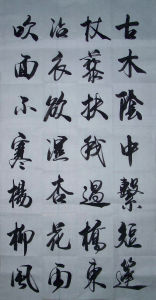 古木陰中繫短篷
杖藜扶我過橋東
沾衣欲濕杏花雨
吹面不寒楊柳風